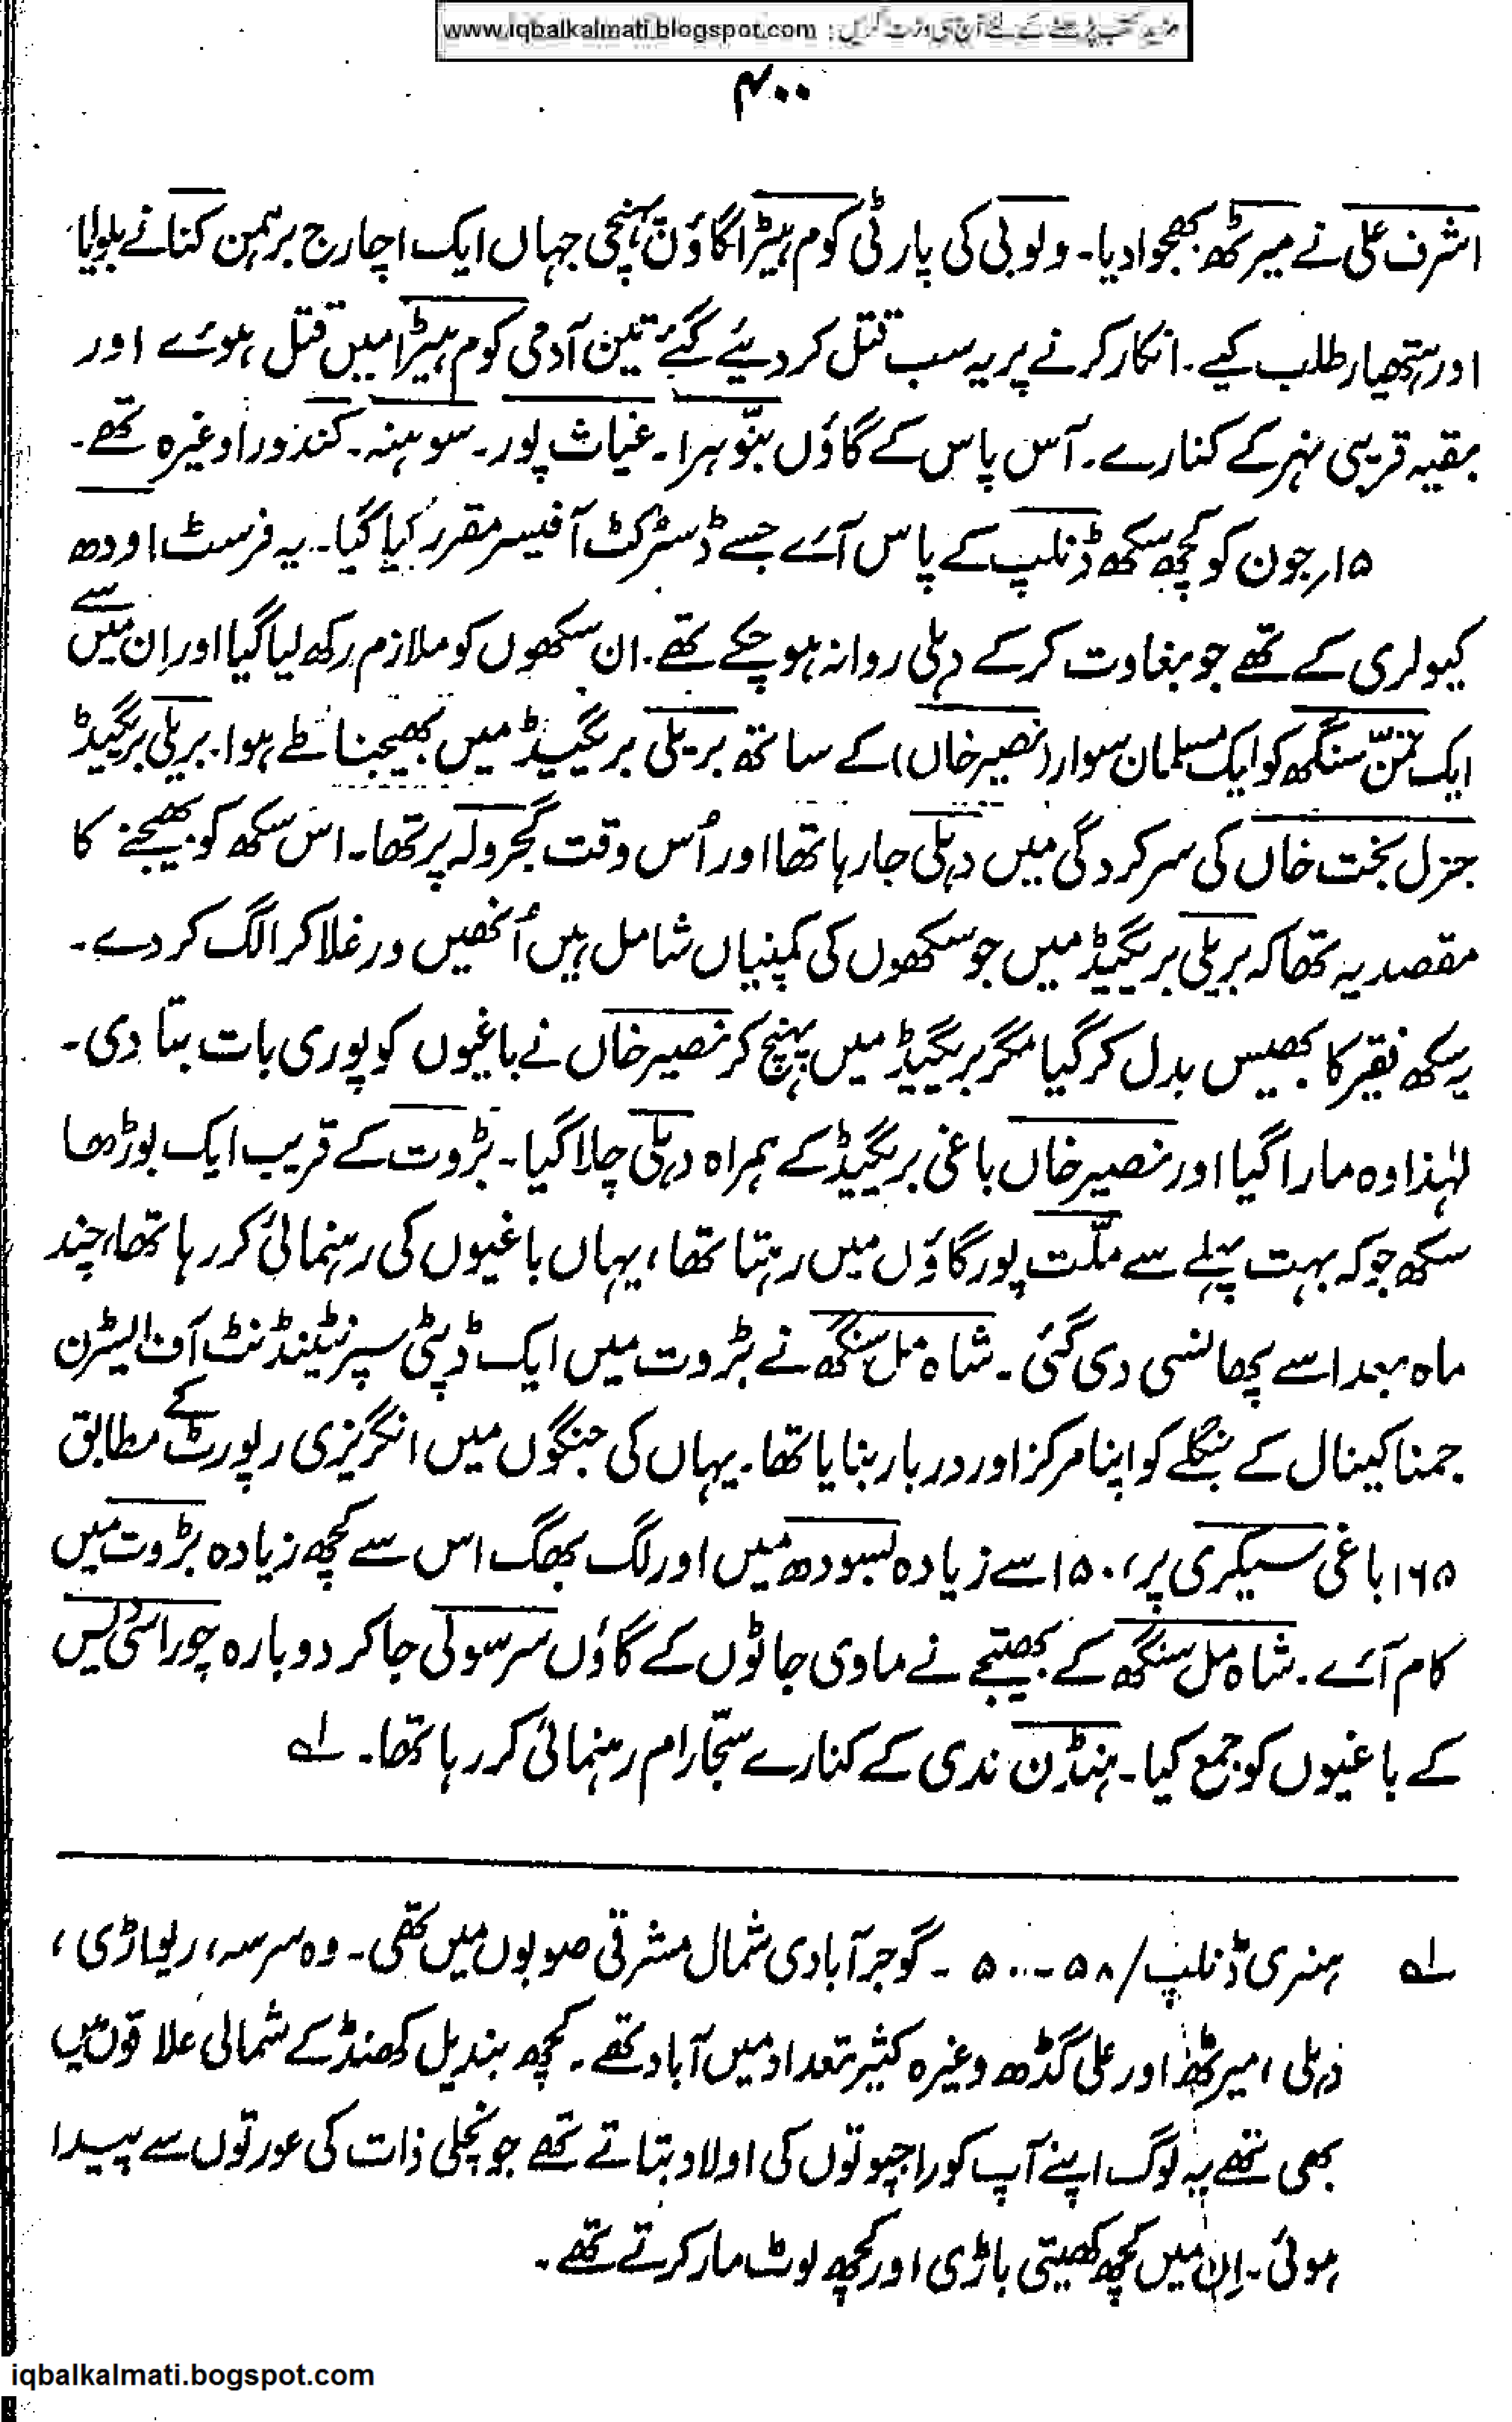 www.iqbalkalmati.blogspot.com : مزید کتب پڑھنے کے لئے آج ہی وزٹ کریں
۴۰۰
اشرف علی نے میرٹھ بھجوا دیا۔ ولوبی کی پارٹی کوم ہیڑا گاؤں پہنچی جہاں ایک اچارج برہمن کنا نے بلوایا
اور ہتھیار طلب کیے۔ انکار کرنے پر یہ سب قتل کر دیئے گئے تین آدمی کوم ہیڑا میں قتل ہوئے اور
بقیہ قریبی نہر کے کنارے۔ آس پاس کے گاؤں بنّوہرا۔ غیاث پور۔ سوہنہ۔ کندورا وغیرہ تھے۔
۱۵؍جون کو کچھ سکھ ڈنلپ کے پاس آئے جسے ڈسٹرکٹ آفیسر مقرر کیا گیا۔ یہ فرسٹ اودھ
کیولری کے تھے جو بغاوت کر کے دہلی روانہ ہو چکے تھے۔ ان سکھوں کو ملازم رکھ لیا گیا اور ان میں سے
ایک تمنّ سنگھ کو ایک مسلمان سوار (نصیر خاں) کے ساتھ بریلی بریگیڈ میں بھیجنا طے ہوا۔ بریلی بریگیڈ
جنرل بخت خاں کی سرکردگی میں دہلی جا رہا تھا اور اُس وقت گجرولہ پر تھا۔ اس سکھ کو بھیجنے کا
مقصد یہ تھا کہ بریلی بریگیڈ میں جو سکھوں کی کمپنیاں شامل ہیں اُنھیں ورغلا کر الگ کر دے۔
سکھ فقیر کا بھیس بدل کر گیا مگر بریگیڈ میں پہنچ کر نصیر خاں نے باغیوں کو پوری بات بتا دی۔
لہٰذا وہ مارا گیا اور نصیر خاں باغی بریگیڈ کے ہمراہ دہلی چلا گیا۔ بڑوت کے قریب ایک بوڑھا
سکھ جو کہ بہت پہلے سے ملّت پور گاؤں میں رہتا تھا، یہاں باغیوں کی رہنمائی کر رہا تھا، چند
ماہ بعد اسے پھانسی دی گئی۔ شاہ مل سنگھ نے بڑوت میں ایک ڈپٹی سپرنٹینڈنٹ آف ایسٹرن
جمنا کینال کے بنگلے کو اپنا مرکز اور دربار بنایا تھا۔ یہاں کی جنگوں میں انگریزی رپورٹ کے مطابق
۱۶۵ باغی سیکری پر، ۱۵۰ سے زیادہ بسودھ میں اور لگ بھگ اس سے کچھ زیادہ بڑوت میں
کام آئے۔ شاہ مل سنگھ کے بھتیجے نے ماوی جاٹوں کے گاؤں سرسولی جا کر دوبارہ چوراسی دیس
کے باغیوں کو جمع کیا۔ ہنڈن ندی کے کنارے سجّا رام رہنمائی کر رہا تھا۔ ؎۱
؎۱ ہنری ڈنلپ/۵۸-۵۰۔ گوجر آبادی شمال مشرقی صوبوں میں تھی۔ وہ سرسہ، ریواڑی،
دہلی، میرٹھ اور علی گڈھ وغیرہ کثیر تعداد میں آباد تھے۔ کچھ بندیل کھنڈ کے شمالی علاقوں میں
بھی تھے یہ لوگ اپنے آپ کو راجپوتوں کی اولاد بتاتے تھے جو نچلی ذات کی عورتوں سے پیدا
ہوئی۔ اِن میں کچھ کھیتی باڑی اور کچھ لوٹ مار کرتے تھے۔
iqbalkalmati.bogspot.com